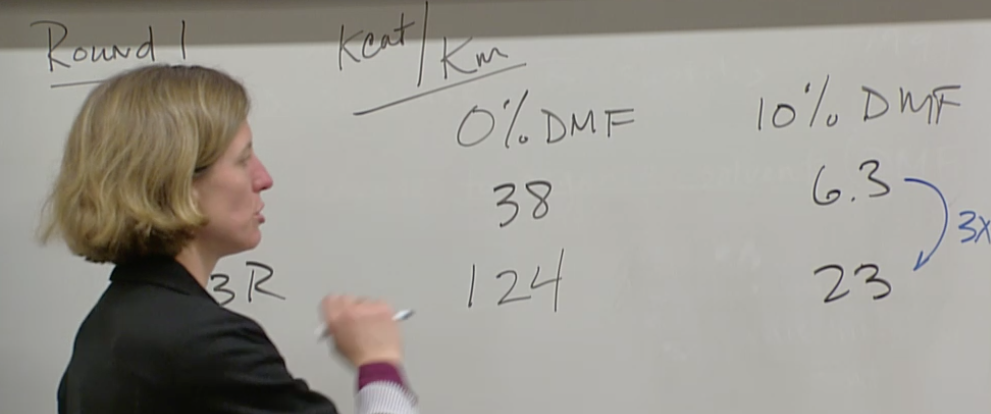 Round 1 Kcat/Km
0% DMF 10% DMF
38 6.3
3X
3R 124 23